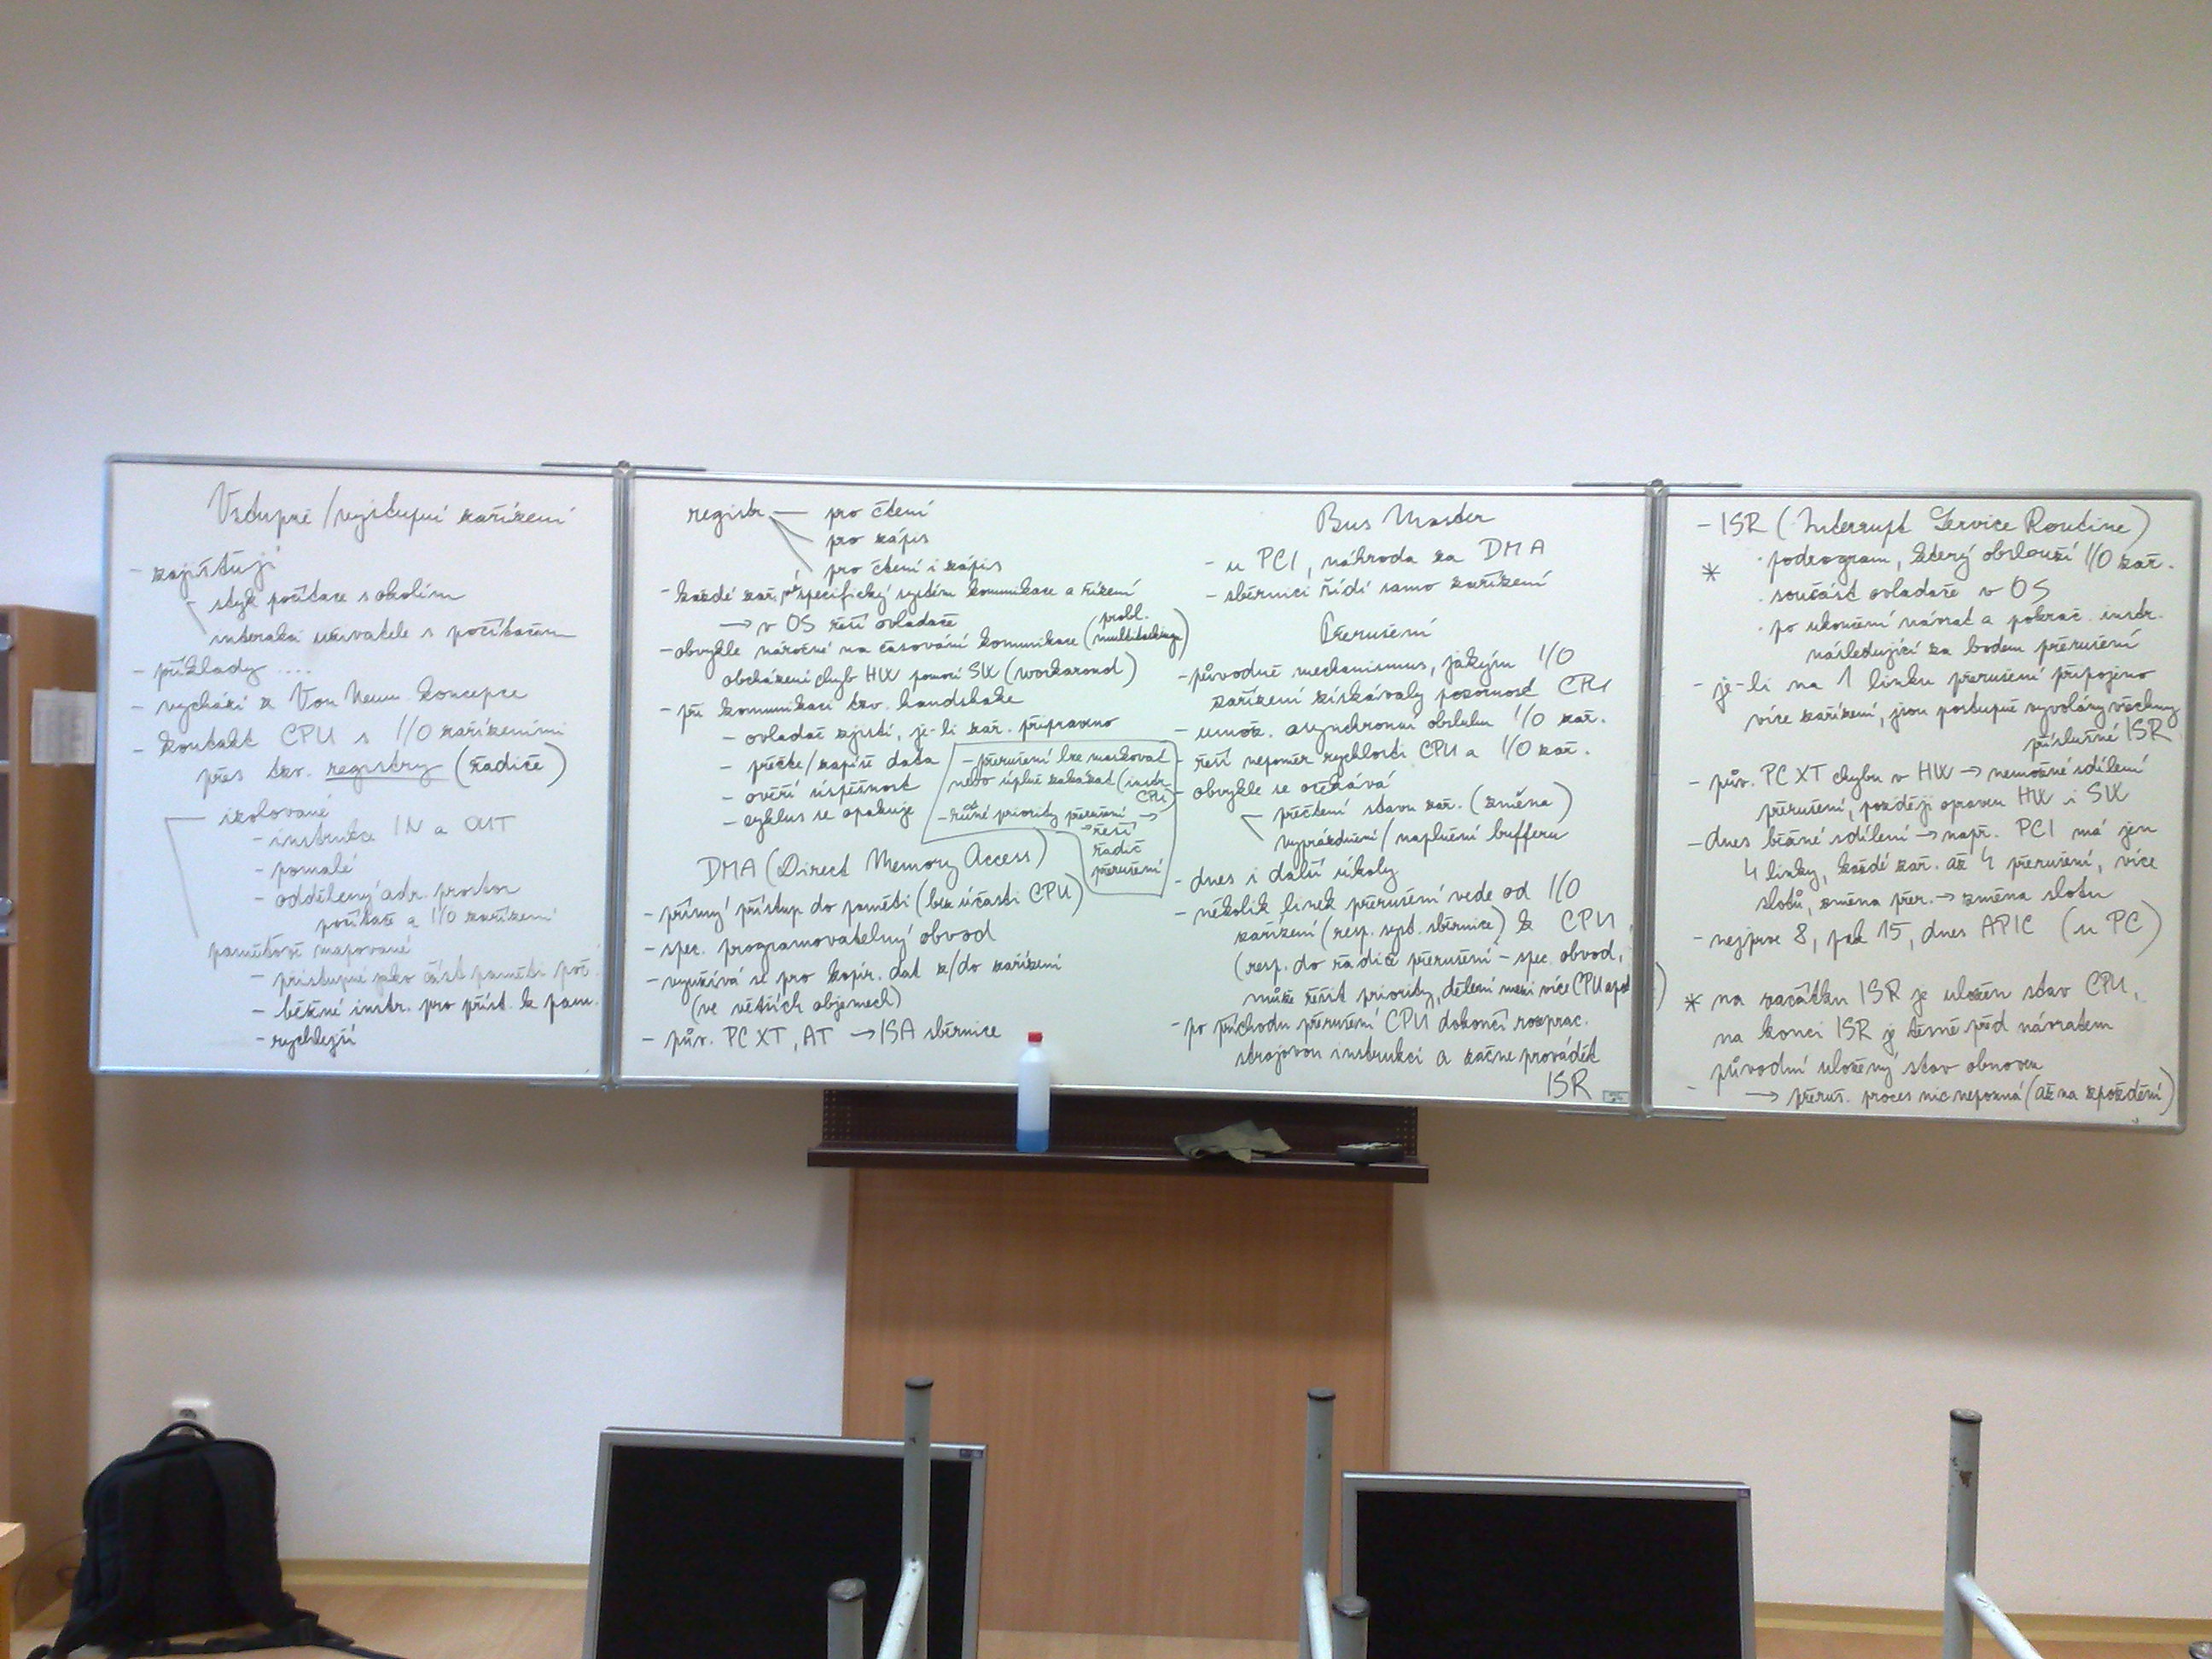 Vstupně/výstupní zařízení
- zajišťují
styk počítače s okolím
interakci uživatele s počítačem
- příklady ....
- vychází z Von Neum. koncepce
- kontakt CPU s I/O zařízeními
přes tzv. registry (řadiče)
izolované
- instrukce IN a OUT
- pomalé
- oddělený adr. prostor
počítače a I/O zařízení
paměťově mapované
- přístupné jako část paměti poč.
- běžné instr. pro příst. k pam.
- rychlejší
registr
pro čtení
pro zápis
pro čtení i zápis
- každé zař. specifický systém komunikace a řízení
→ v OS řeší ovladače
- obvykle náročné na časování komunikace (probl. multitaskingu)
obcházení chyb HW pomocí SW (workarond)
- při komunikaci tzv. handshake
- ovladač zjistí, je-li zař. připraveno
- přečte/zapíše data
- ověří úspěšnost
- cyklus se opakuje
- přerušení lze maskovat
nebo úplně zakázat (instr.
CPU)
- různé priority přerušení →
→ řeší
řadič
přerušení
DMA (Direct Memory Access)
- přímý přístup do paměti (bez účasti CPU)
- spec. programovatelný obvod
- využívá se pro kopír. dat z/do zařízení
(ve větších objemech)
- pův. PC XT, AT → ISA sběrnice
Bus Master
- u PCI, náhroda za DMA
- sběrnici řídí samo zařízení
Přerušení
- původně mechanismus, jakým I/O
zařízení získávaly pozornost CPU
- umož. asynchronní obsluhu I/O zař.
- řeší nepoměr rychlosti CPU a I/O zař.
- obvykle se očekává
přečtení stavu zař. (změna)
vyprázdnění/naplnění bufferu
- dnes i další úkoly
- několik linek přerušení vede od I/O
zařízení (resp. syst. sběrnice) k CPU
(resp. do řadiče přerušení - spec. obvod,
může řešit priority, dělení mezi více CPU apod.)
- po příchodu přerušení CPU dokončí rozprac.
strojovou instrukci a začne provádět
ISR
- ISR (Interrupt Service Routine)
* · podprogram, který obslouží I/O zař.
· součást ovladače v OS
· po ukončení návrat a pokrač. instr.
následující za bodem přerušení
- je-li na 1 linku přerušení připojeno
více zařízení, jsou postupně vyvolány všechny
příslušné ISR
- pův. PC XT chyba v HW → nemožné sdílení
přerušení, později opraven HW i SW
- dnes běžné sdílení → např. PCI má jen
4 linky, každé zař. až 4 přerušení, více
slotů, změna přer. → změna slotu
- nejprve 8, pak 15, dnes APIC (u PC)
* na začátku ISR je uložen stav CPU,
na konci ISR je těsně před návratem
původní uložený stav obnoven
- → přeruš. proces nic nepozná (až na zpoždění)